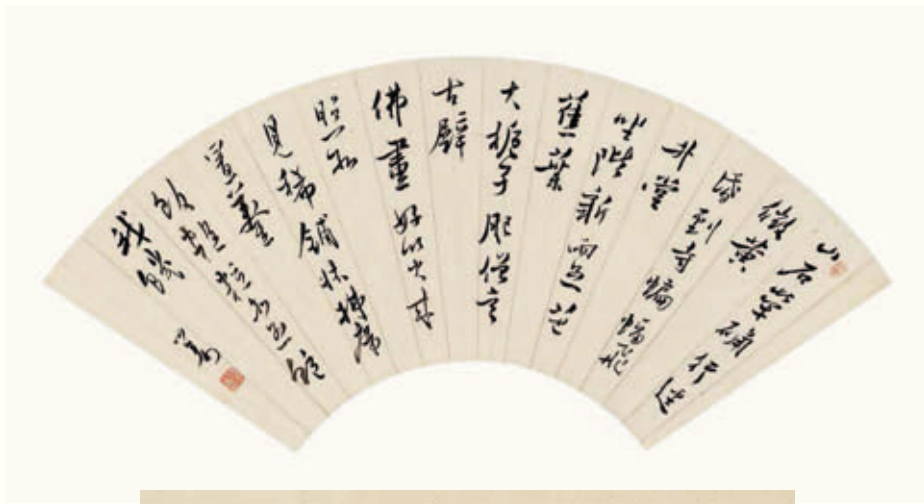 山石犖确行徑
微黃
昏到寺蝙蝠飛
升堂
坐階新雨足芭
蕉葉
大梔子肥僧言
古壁
佛畫好以火來
照所
見稀鋪床拂席
置羹
飯疏糲亦足飽
我飢